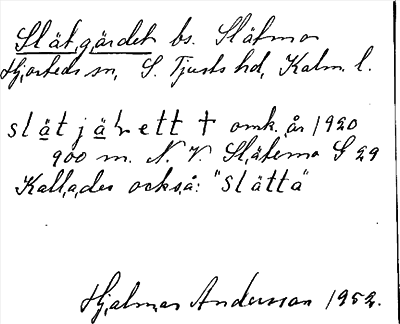 Slätgärdet bs. Slätmon
Hjorteds sn, S. Tjusts hd, Kalm. l.
slätjälrett † omk. år 1920
900 m. N. V. Slätemo S 29
Kallades också: "slätta"
Hjalmar Andersson 1952.